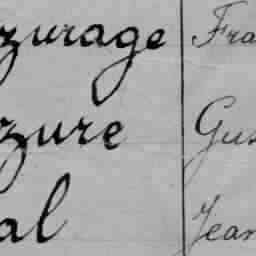 zurage Fra
zure Gus
al Jean